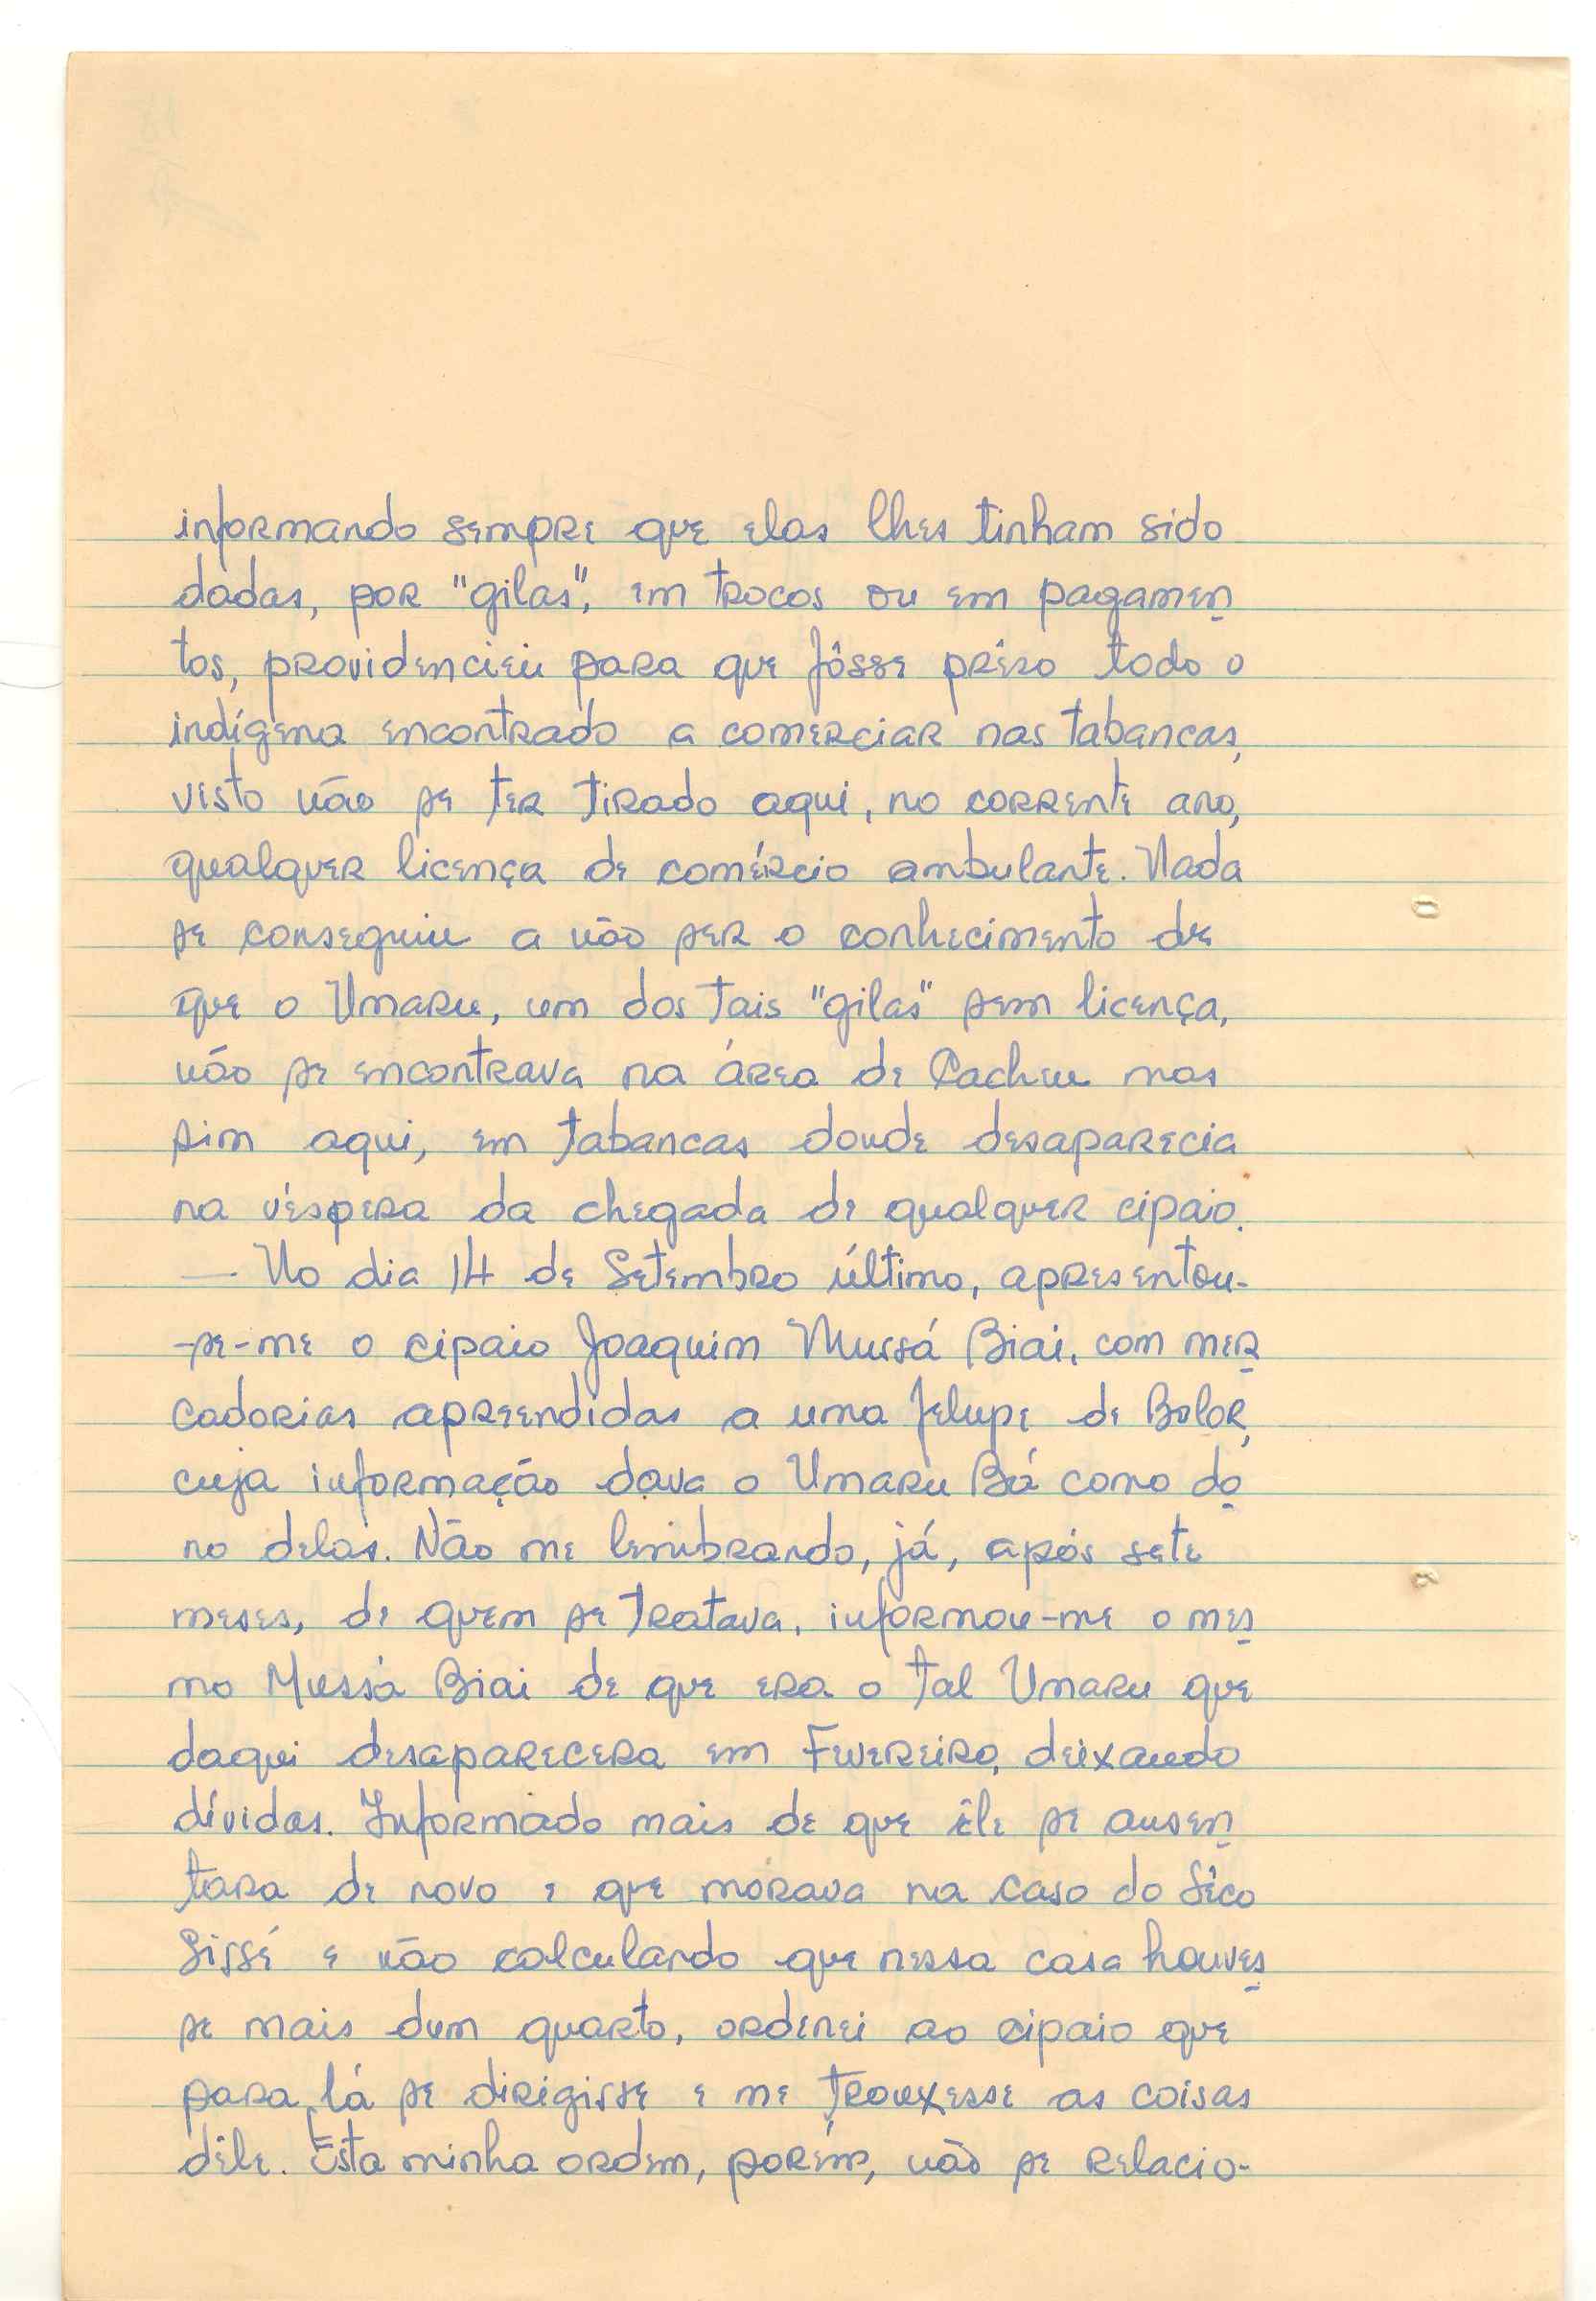 informando sempre que elas lhes tinham sido
dadas, por "gilas", em trocos ou em pagamen
tos, providenciei para que fôsse prêso todo o
indígena encontrado a comerciar nas tabancas,
visto não se ter tirado aqui, no corrente ano,
qualquer licença de comércio ambulante. Nada
se conseguiu a não ser o conhecimento de
que o Umaru, um dos tais "gilas" sem licença,
não se encontrava na área de Cacheu mas
sim aqui, em tabancas donde desaparecia
na véspera da chegada de qualquer cipaio.
— No dia 14 de Setembro último, apresentou-
-se-me o cipaio Joaquim Mussá Biai, com mer
cadorias apreendidas a uma felupe de Bolor,
cuja informação dava o Umaru Bá como do
no delas. Não me lembrando, já, após sete
meses, de quem se tratava, informou-me o mes
mo Mussá Biai de que era o tal Umaru que
daqui desaparecera em Fevereiro, deixando
dívidas. Informado mais de que êle se ausen
tara de novo e que morava na casa do Sêco
Sissé e não calculando que nessa casa houves
se mais dum quarto, ordenei ao cipaio que
para lá se dirigisse e me trouxesse as coisas
dêle. Esta minha ordem, porém, não se relacio-